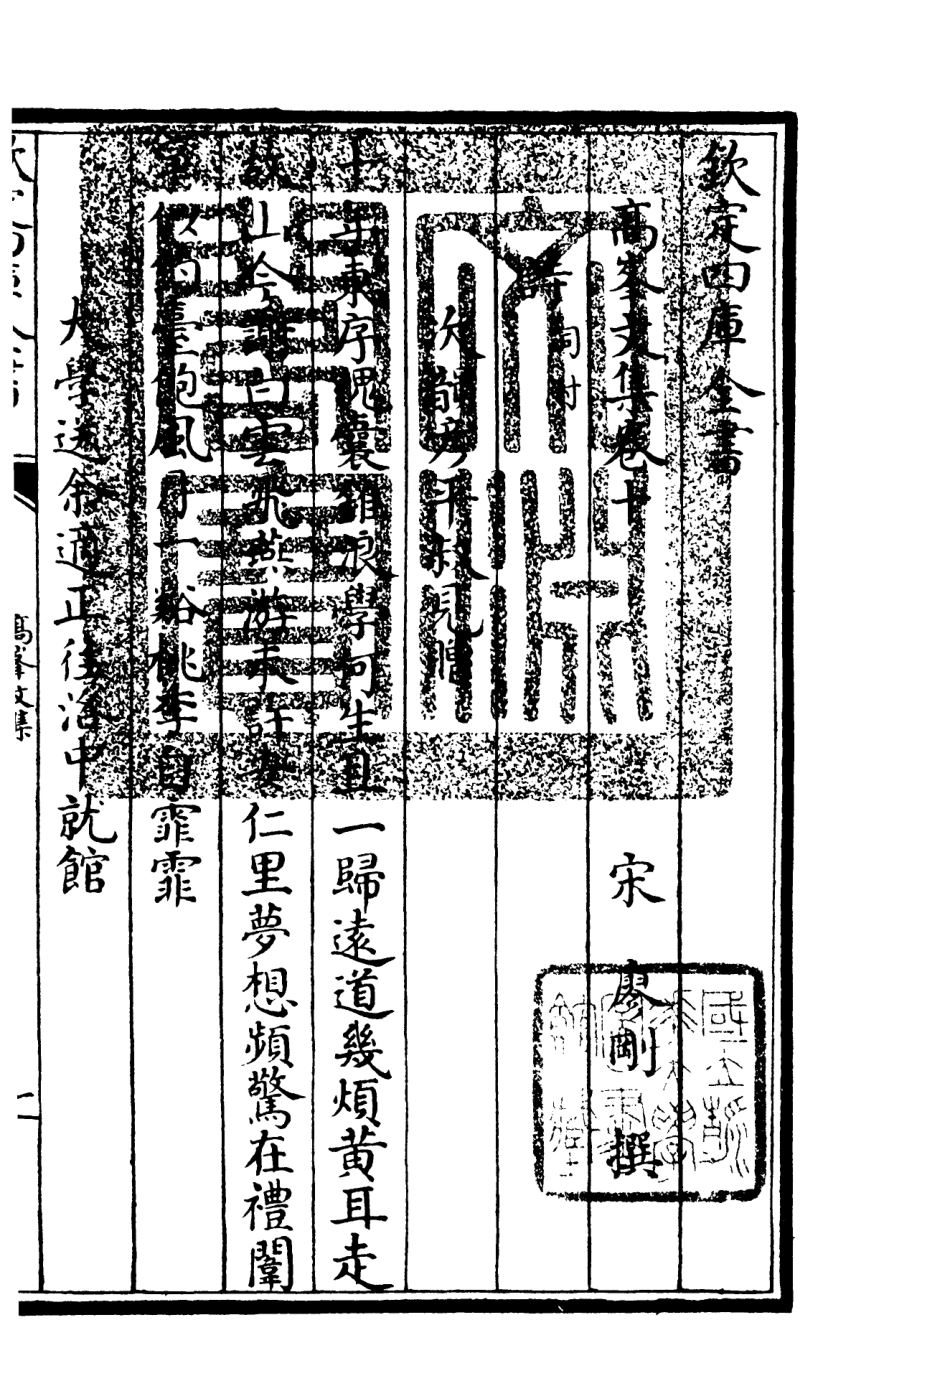 欽定四庫全書
高峯文集卷十
宋 廖剛 撰
詩 詞附
次韻彦平見贈
十年東序愧囊錐浪學何生且一歸遠道幾煩黄耳走
故山今白雲飛燕游未許安仁里夢想頻驚在禮闈
臺饒風月一谿桃李自霏霏
大學送余適正往洛中就館
欽定四庫全書
高峯文集
一